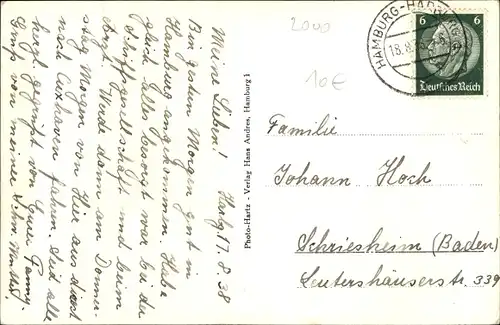 Meine Lieben! Hbg. 17.8.38
Bin gestern Morgen gut in
Hamburg angekommen. Habe
gleich alles besorgt war bei der
Schiffgesellschaft und beim
Arzt. Werde dann am Donners-
tag Morgen von Hier aus direkt
nach Cuxhaven fahren. Seit alle
herzl. gegrüßt von Eurer Fanny.
Gruß von meiner
Photo-Hartz - Verlag Hans Andres, Hamburg 1
2000
10€
HAMBURG-HARBURG
18.8.
6 6
Deutsches Reich
Familie
Johann Hoch
Schriesheim (Baden)
Leutershäuserstr. 339